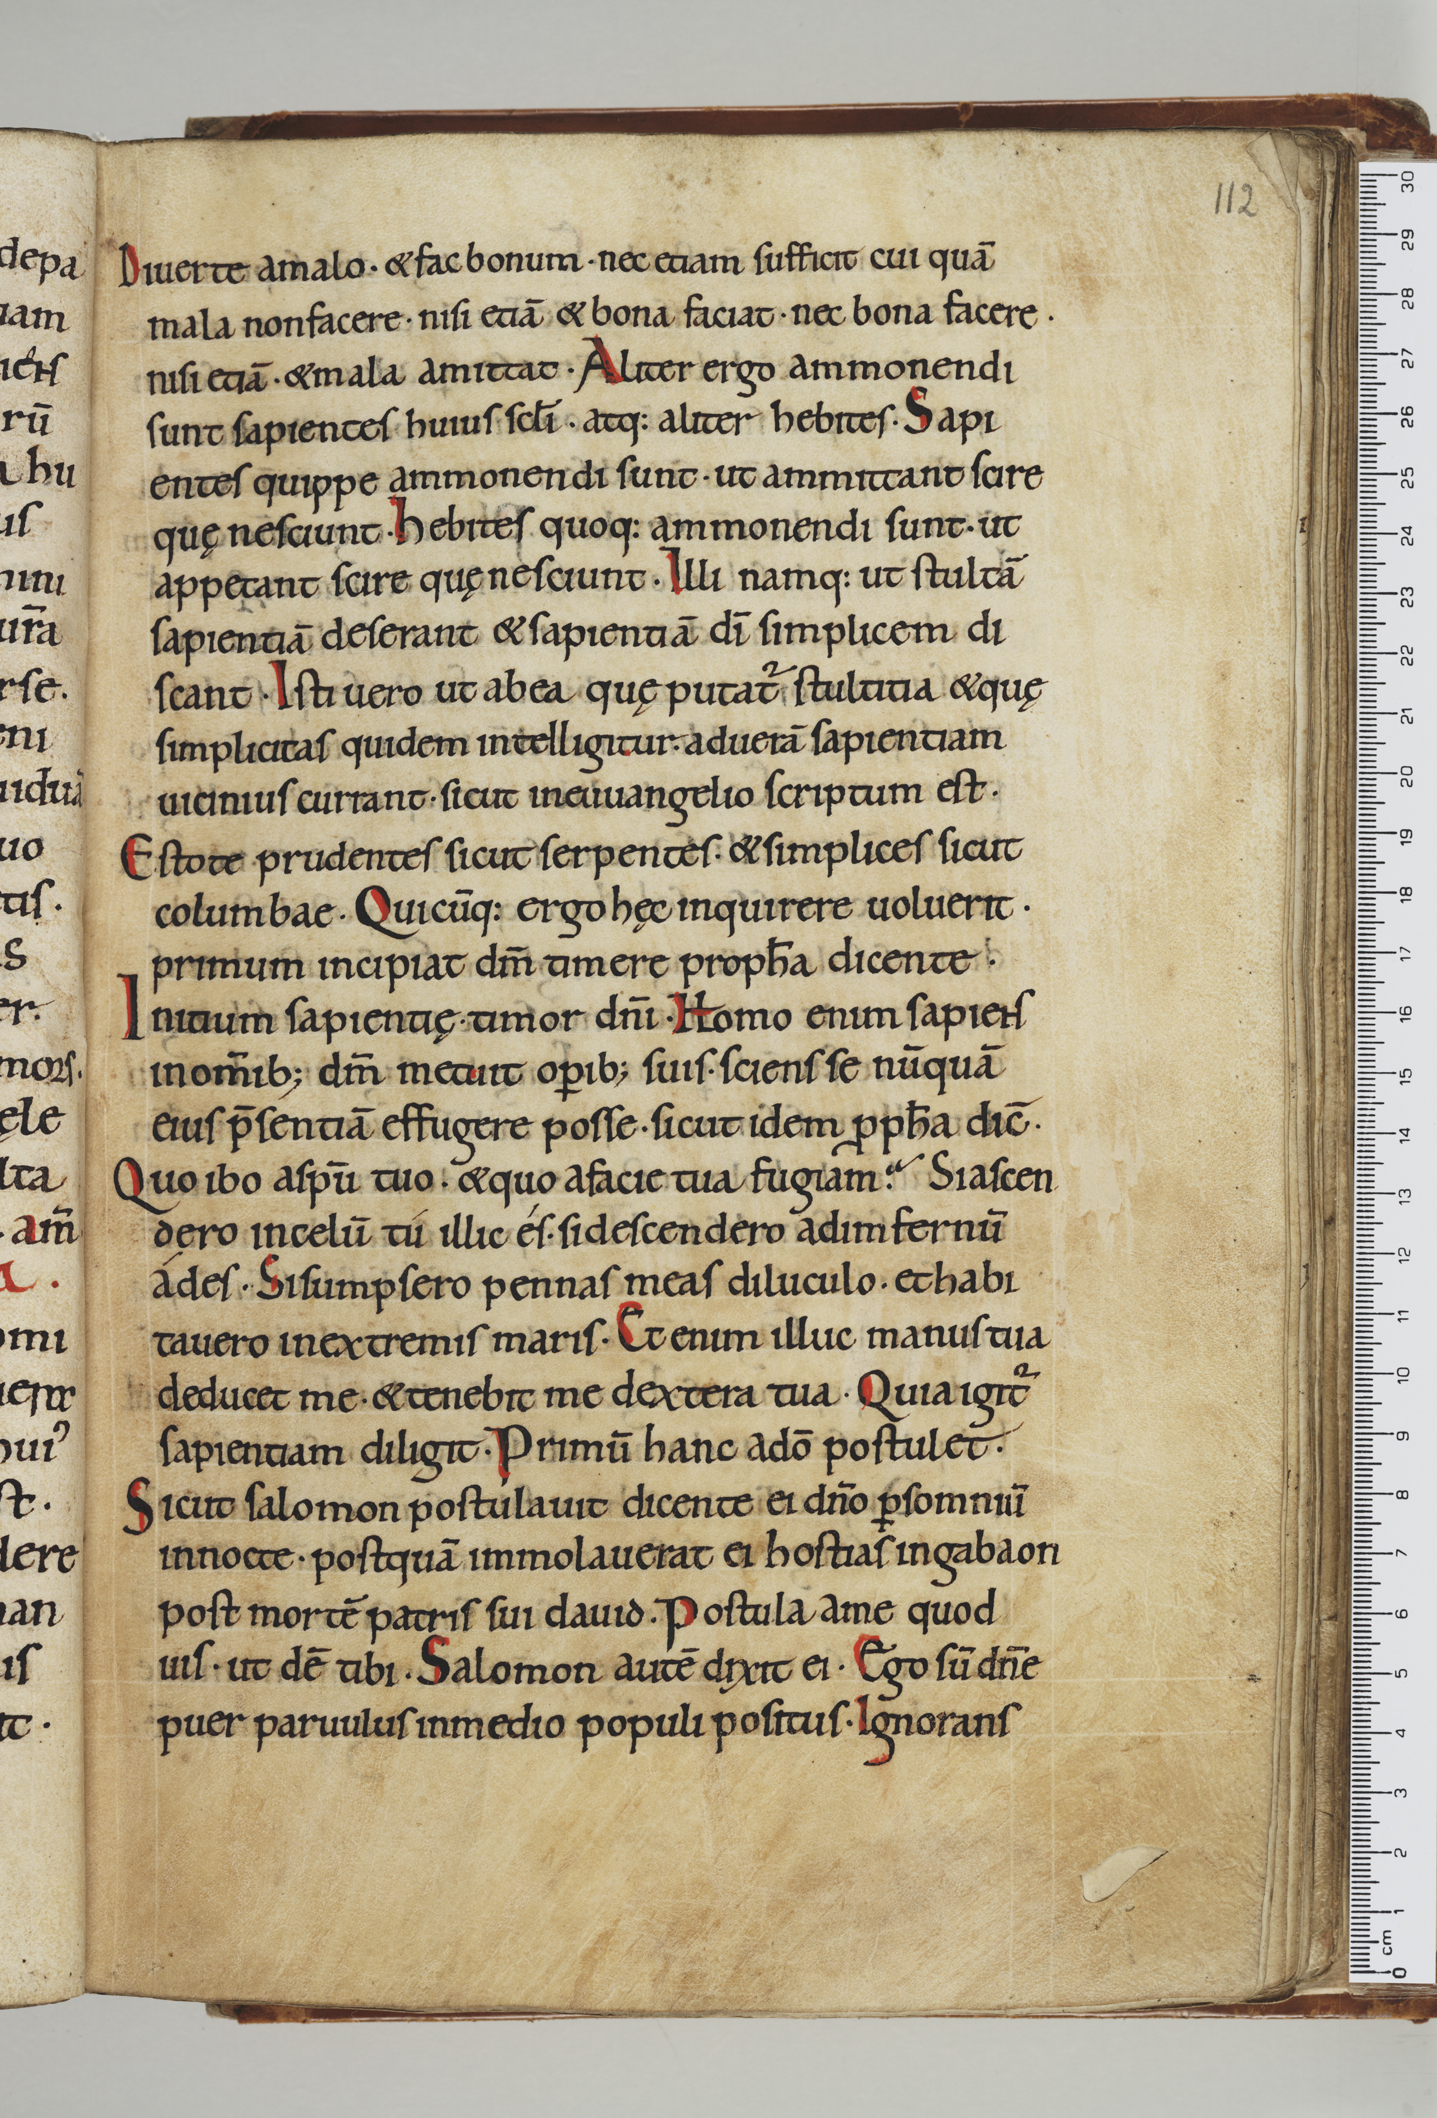 112
Diuerte amalo · & fac bonum · nec etiam sufficit cui quā
mala nonfacere · nisi etiā & bona faciat · nec bona facere ·
nisi etiā · & mala amittat · Aliter ergo ammonendi
sunt sapientes huius scli̅ · atq: aliter hebites · Sapi
entes quippe ammonendi sunt · ut ammittant scire
quę nesciunt · hebites quoq: ammonendi sunt · ut
appetant scire quę nesciunt · Illi namq: ut stultā
sapientiā deserant & sapientiā dī simplicem di
scant · Isti uero ut abea quę putat᷑ stultitia & quę
simplicitas quidem intelligitur · aduerā sapientiam
uicinius currant · sicut ineuuangelio scriptum est ·
Estote prudentes sicut serpentes · & simplices sicut
columbae · Quicūq: ergo hęc inquirere uoluerit ·
primum incipiat dm̄ timere proph̄a dicente :
Initium sapientię · timor dn̄i · Homo enim sapiens
inom̄ib; dm̄ metuit op̱ib; suis · sciens se nūquā
eius p̄sentiā effugere posse · sicut idem ꝓph̄a dic̄ ·
Quo ibo aspū tuo · & quo afacie tua fugiam? Siascen
dero incelū tú illic és · sidescendero adimfernū
ádes · Sisumpsero pennas meas diluculo · et habi
tauero inextremis maris · Et enim illuc manus tua
deducet me · & tenebit me dextera tua · Quia igit᷑
sapientiam diligit · Primū hanc adō postulet ·
Sicut salomon postulauit dicente ei dn̄o ꝑsomniū
innocte · postquā immolauerat ei hostias ingabaon
post mortē patris sui dauid · Postula ame quod
uis · ut dē tibi · Salomon autē dixit ei · Ego sū dn̄e
puer paruulus inmedio populi positus · Ignorans